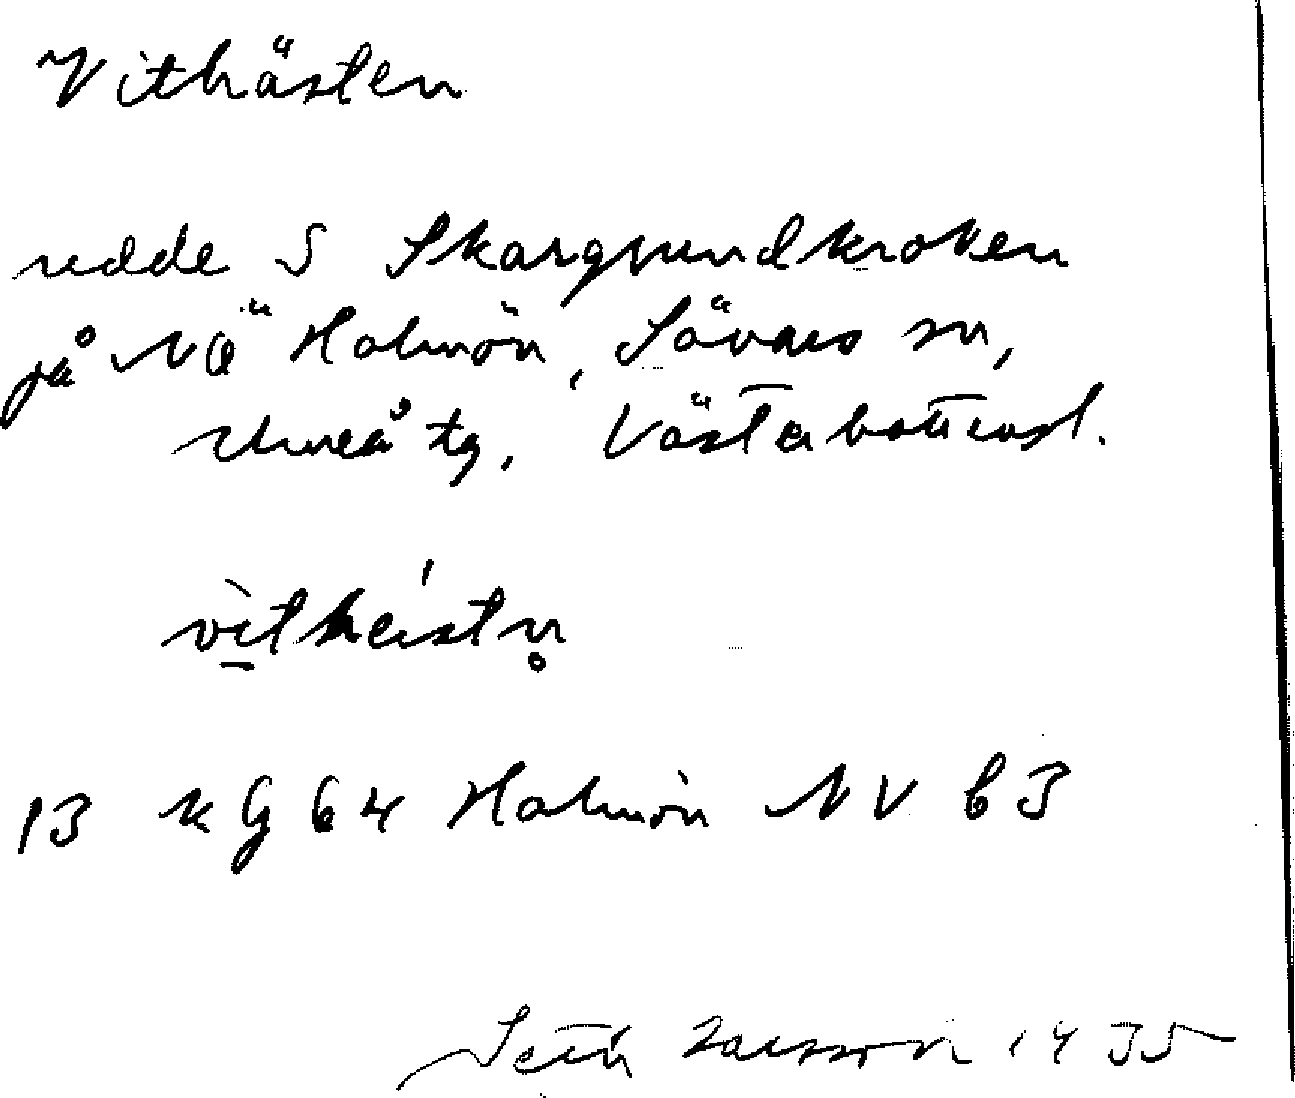 Vithästen
udde S Skärgrundkroken
på NÖ Holmön, Sävars sn,
Umeå tg, Västerbottens l.
13 KG 64 Holmön NV b3
Seth Larsson 1935